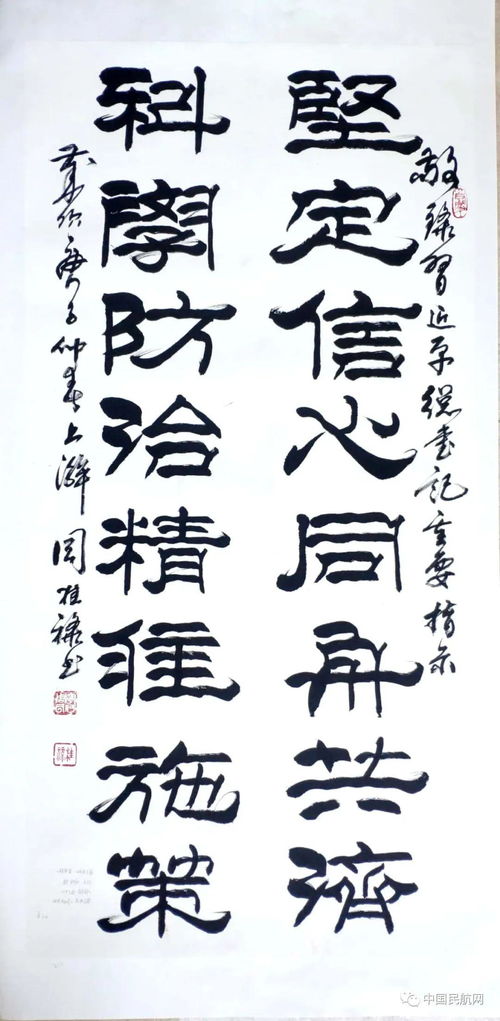 敬錄習近平總書記重要指示
堅定信心同舟共濟
科學防治精准施策
歲次庚子仲春上澣周桂祿书
中国民航网